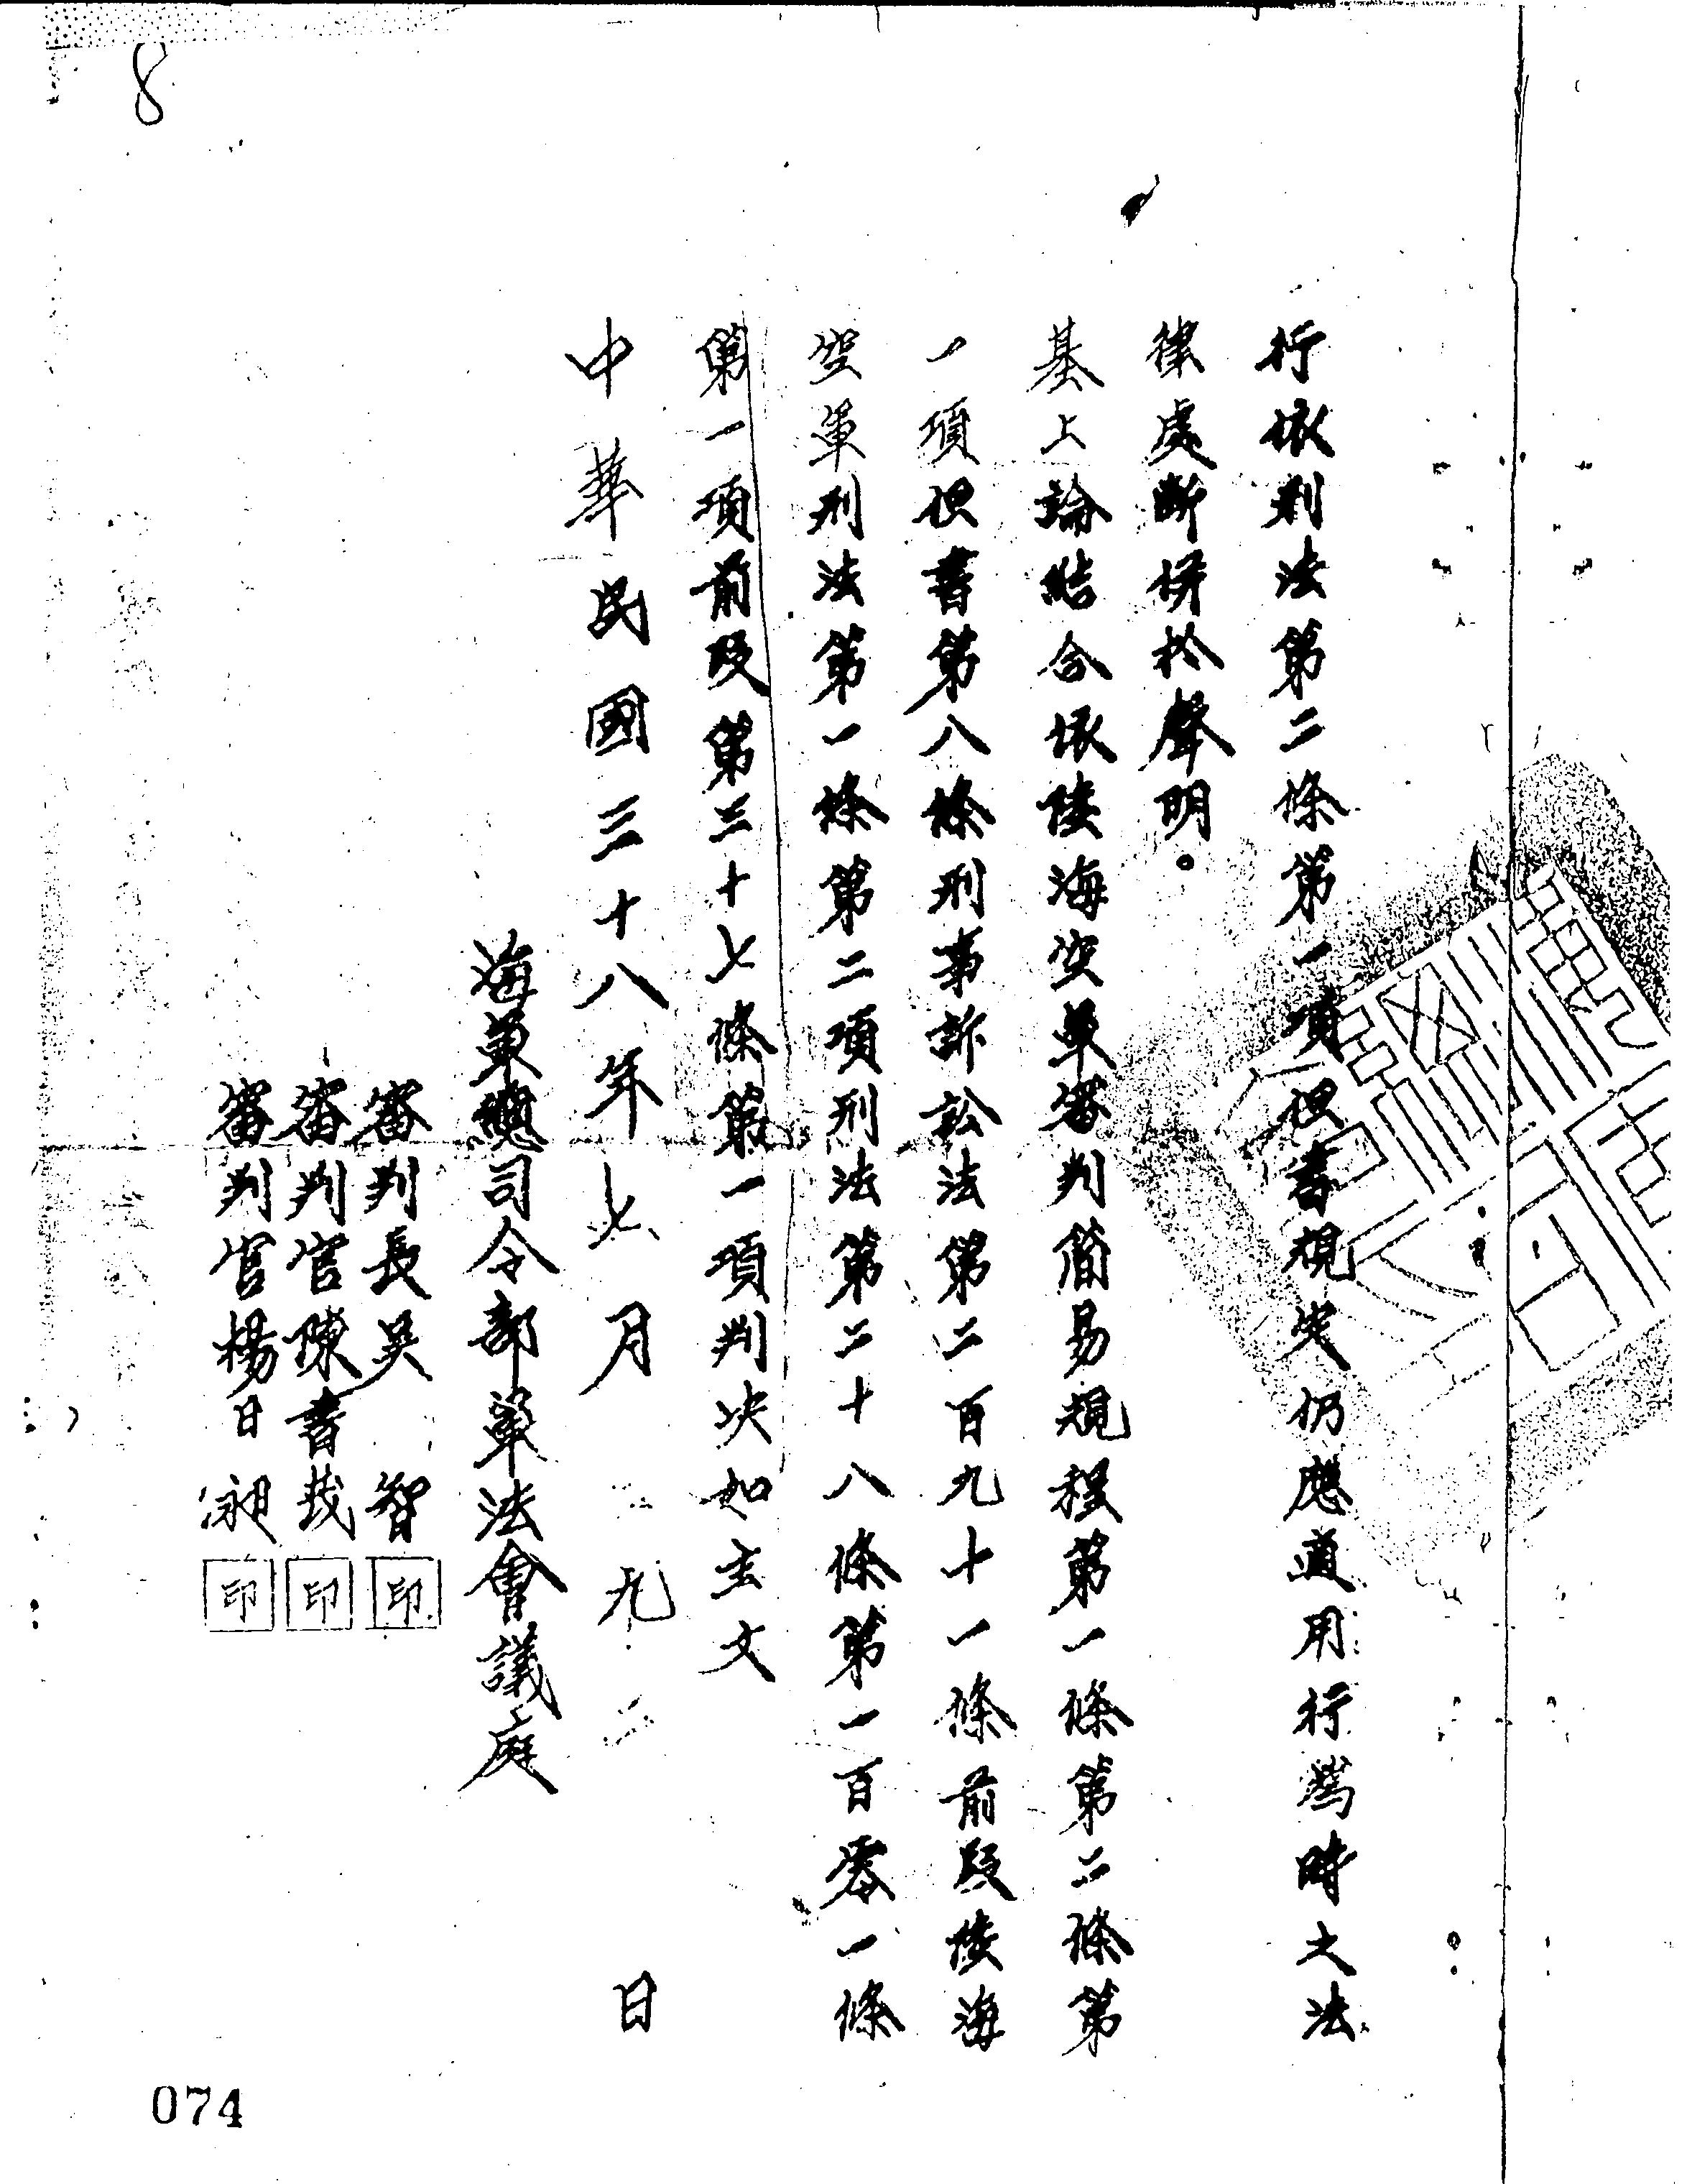 8
行依刑法第二條第一項但書規定仍應適用行為時之法
律處斷併於聲明。
基上論結合依陸海空軍審判簡易規程第一條第二條第
一項但書第八條刑事訴訟法第二百九十一條前段陸海
空軍刑法第一條第二項刑法第二十八條第一百零一條
第一項前段第三十七條第一項判決如主文
中華民國三十八年七月 九 日
海軍總司令部軍法會議庭
審判長吳 智 印
審判官陳書茂 印
審判官楊日 印
074